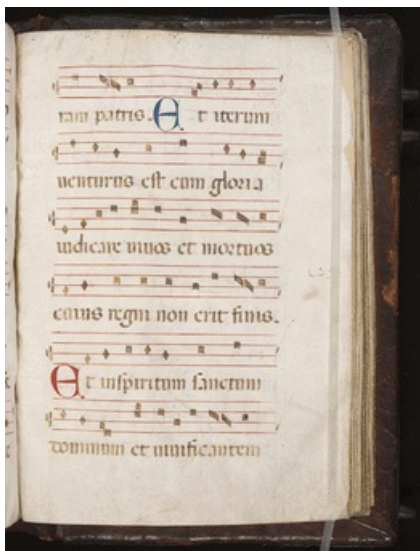 ram patris. Et iterum
venturus est cum gloria
iudicare uiuos et mortuos
cuius regni non erit finis.
Et inspiritum sanctum
dominum et uiuificantem